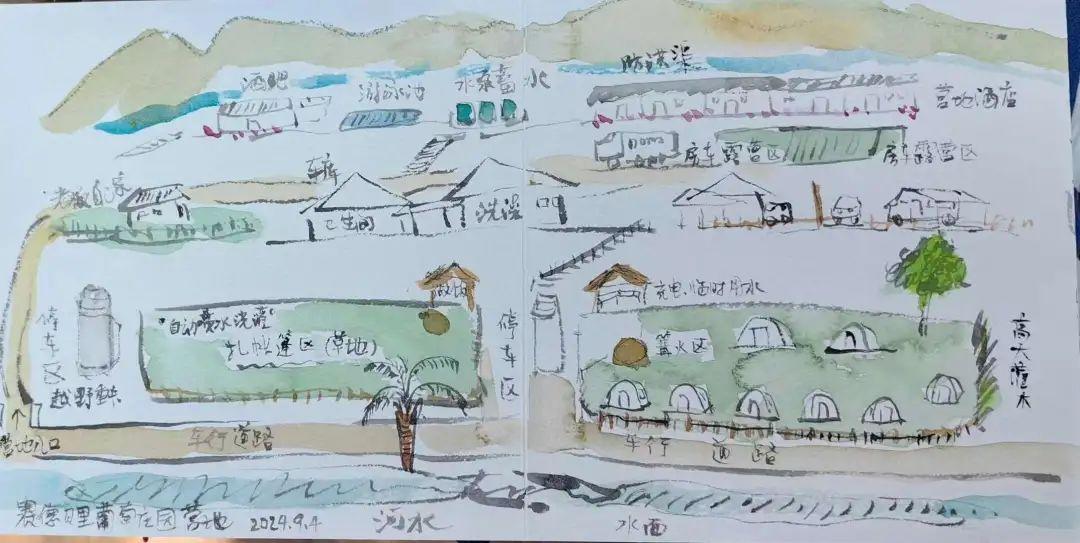 防洪渠
酒吧
游泳池
水泵蓄水
营地酒店
房车露营区
房车露营区
车库
自家
卫生间
洗澡
充电、临时用水
停车区
越野车
"自动喷水洗灌"
扎帐篷区(草地)
停车区
篝火区
高大灌木
营地入口
车行道路
车行道路
赛德里葡萄庄园营地 2024.9.4
河水
水面